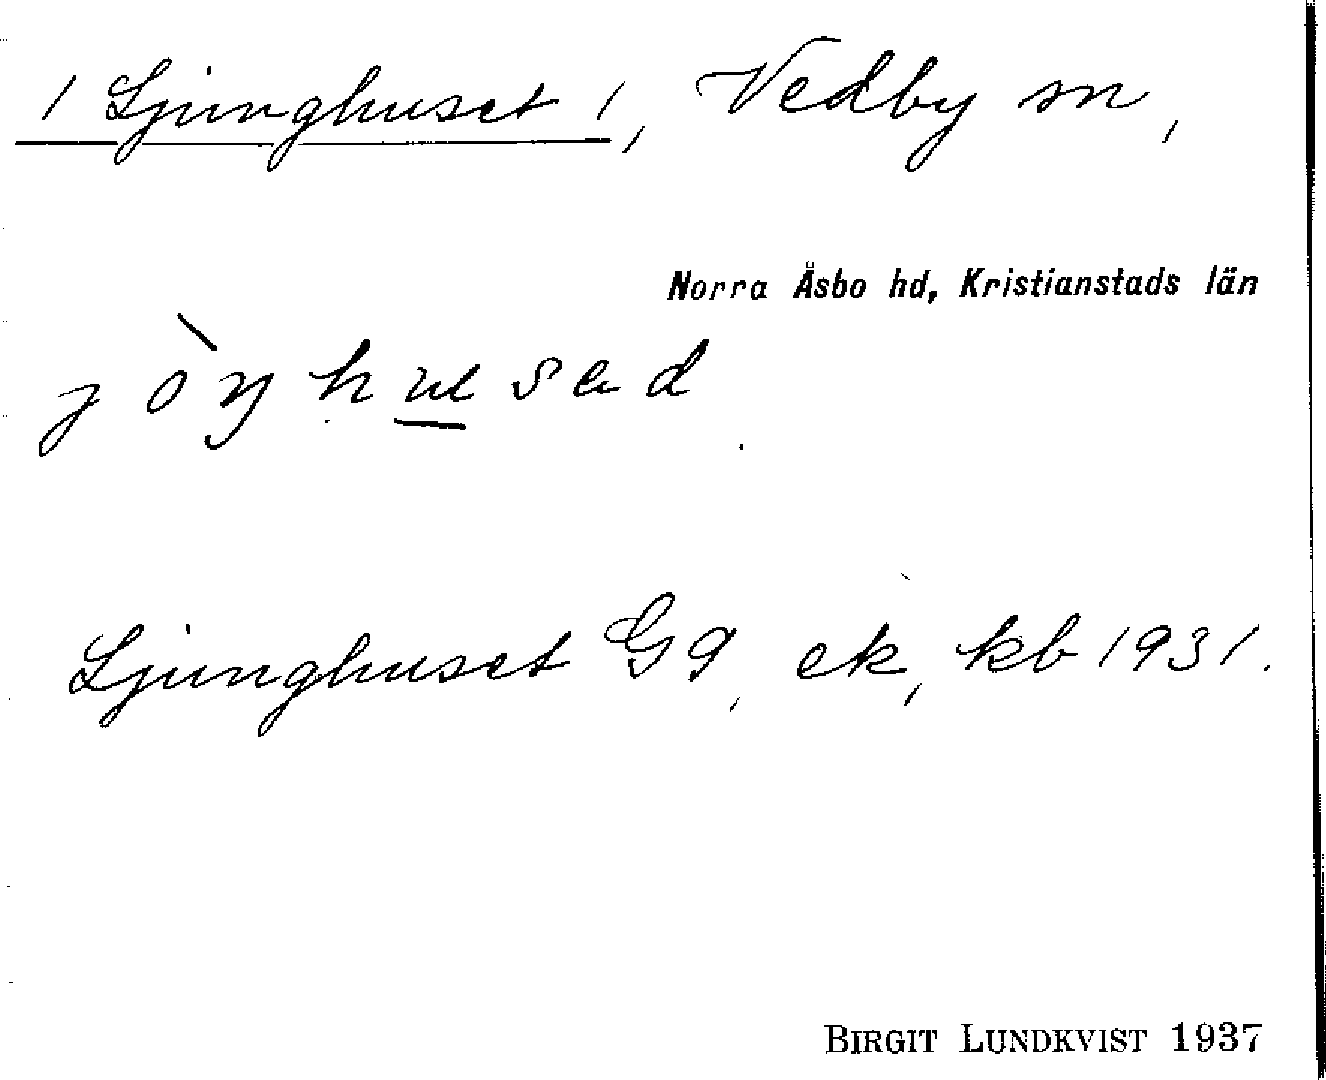 / Ljunghuset /, Vedby sn,
Norra Åsbo hd, Kristianstads län
jòŋhusəd
Ljunghuset G9, ek, kb 1931.
BIRGIT LUNDKVIST 1937